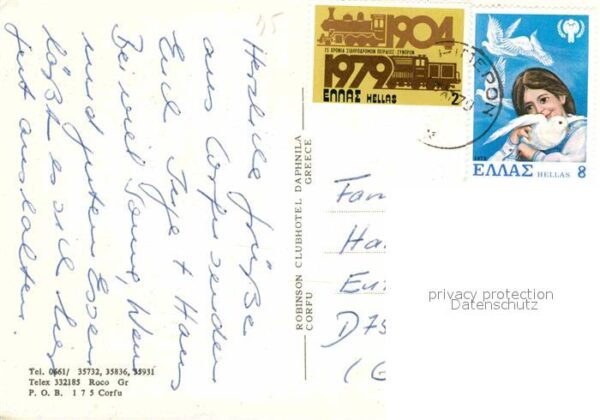 Herzliche Grüße
aus Corfu senden
Euch Inge + Hans
Bei viel Sonne, Wein
und gutem Essen
läßt es sich hier
gut aushalten.
Tel. 0661/ 35732, 35836, 35931
Telex 332185 Roco Gr
P. O. B. 1 7 5 Corfu
ROBINSON CLUBHOTEL DAPHNILA
CORFU GREECE
1904
75 ΧΡΟΝΙΑ ΣΙΔΗΡΟΔΡΟΜΟΥ ΠΕΙΡΑΙΩΣ-ΣΥΝΟΡΩΝ
1979
ΕΛΛΑΣ HELLAS 2
ΕΛΛΑΣ HELLAS 8
Fam
Ha
D 75
privacy protection
Datenschutz